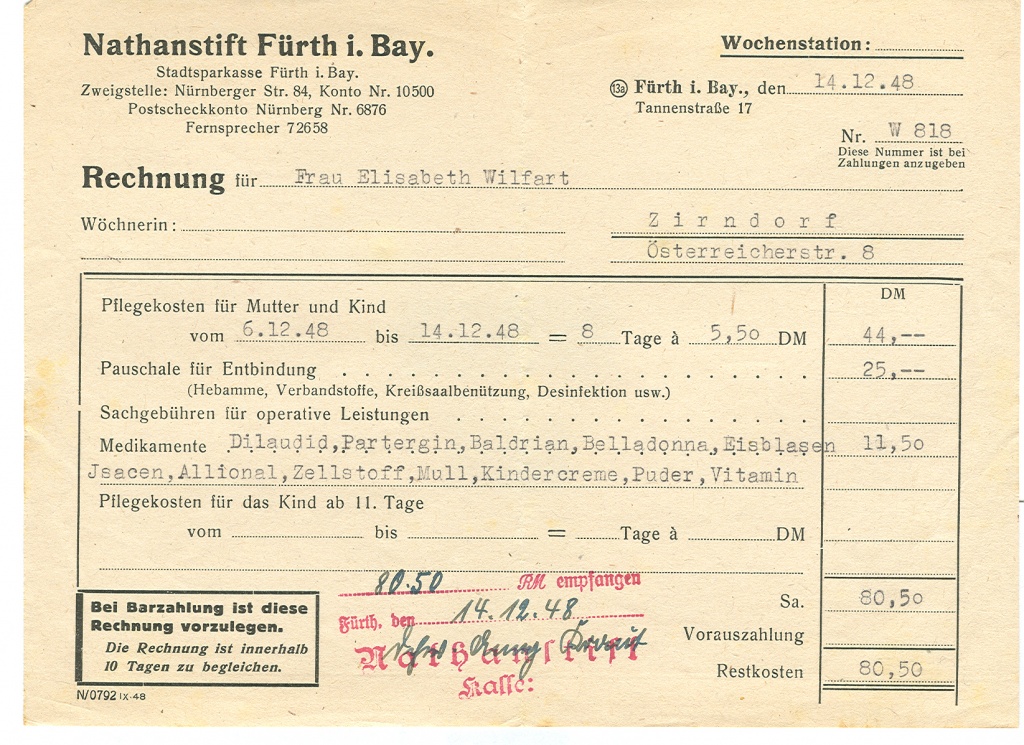 Nathanstift Fürth i. Bay.
Stadtsparkasse Fürth i. Bay.
Zweigstelle: Nürnberger Str. 84, Konto Nr. 10500
Postscheckkonto Nürnberg Nr. 6876
Fernsprecher 72658
Wochenstation:
13a Fürth i. Bay., den 14.12.48
Tannenstraße 17
Nr. W 818
Diese Nummer ist bei
Zahlungen anzugeben
Rechnung für Frau Elisabeth Wilfart
Wöchnerin: Zirndorf
Österreicherstr. 8
DM
Pflegekosten für Mutter und Kind
vom 6.12.48 bis 14.12.48 = 8 Tage à 5,50 DM 44,--
Pauschale für Entbindung 25,--
(Hebamme, Verbandstoffe, Kreißsaalbenützung, Desinfektion usw.)
Sachgebühren für operative Leistungen
Medikamente Dilaudid,Partergin,Baldrian,Belladonna,Eisblasen 11,50
Jsacen,Allional,Zellstoff,Mull,Kindercreme,Puder,Vitamin
Pflegekosten für das Kind ab 11. Tage
vom bis = Tage à DM
80.50 RM empfangen
Fürth, den 14.12.48
Nathanstift
Kasse:
Bei Barzahlung ist diese
Rechnung vorzulegen.
Die Rechnung ist innerhalb
10 Tagen zu begleichen.
Sa. 80,50
Vorauszahlung
Restkosten 80,50
N/0792 IX-48